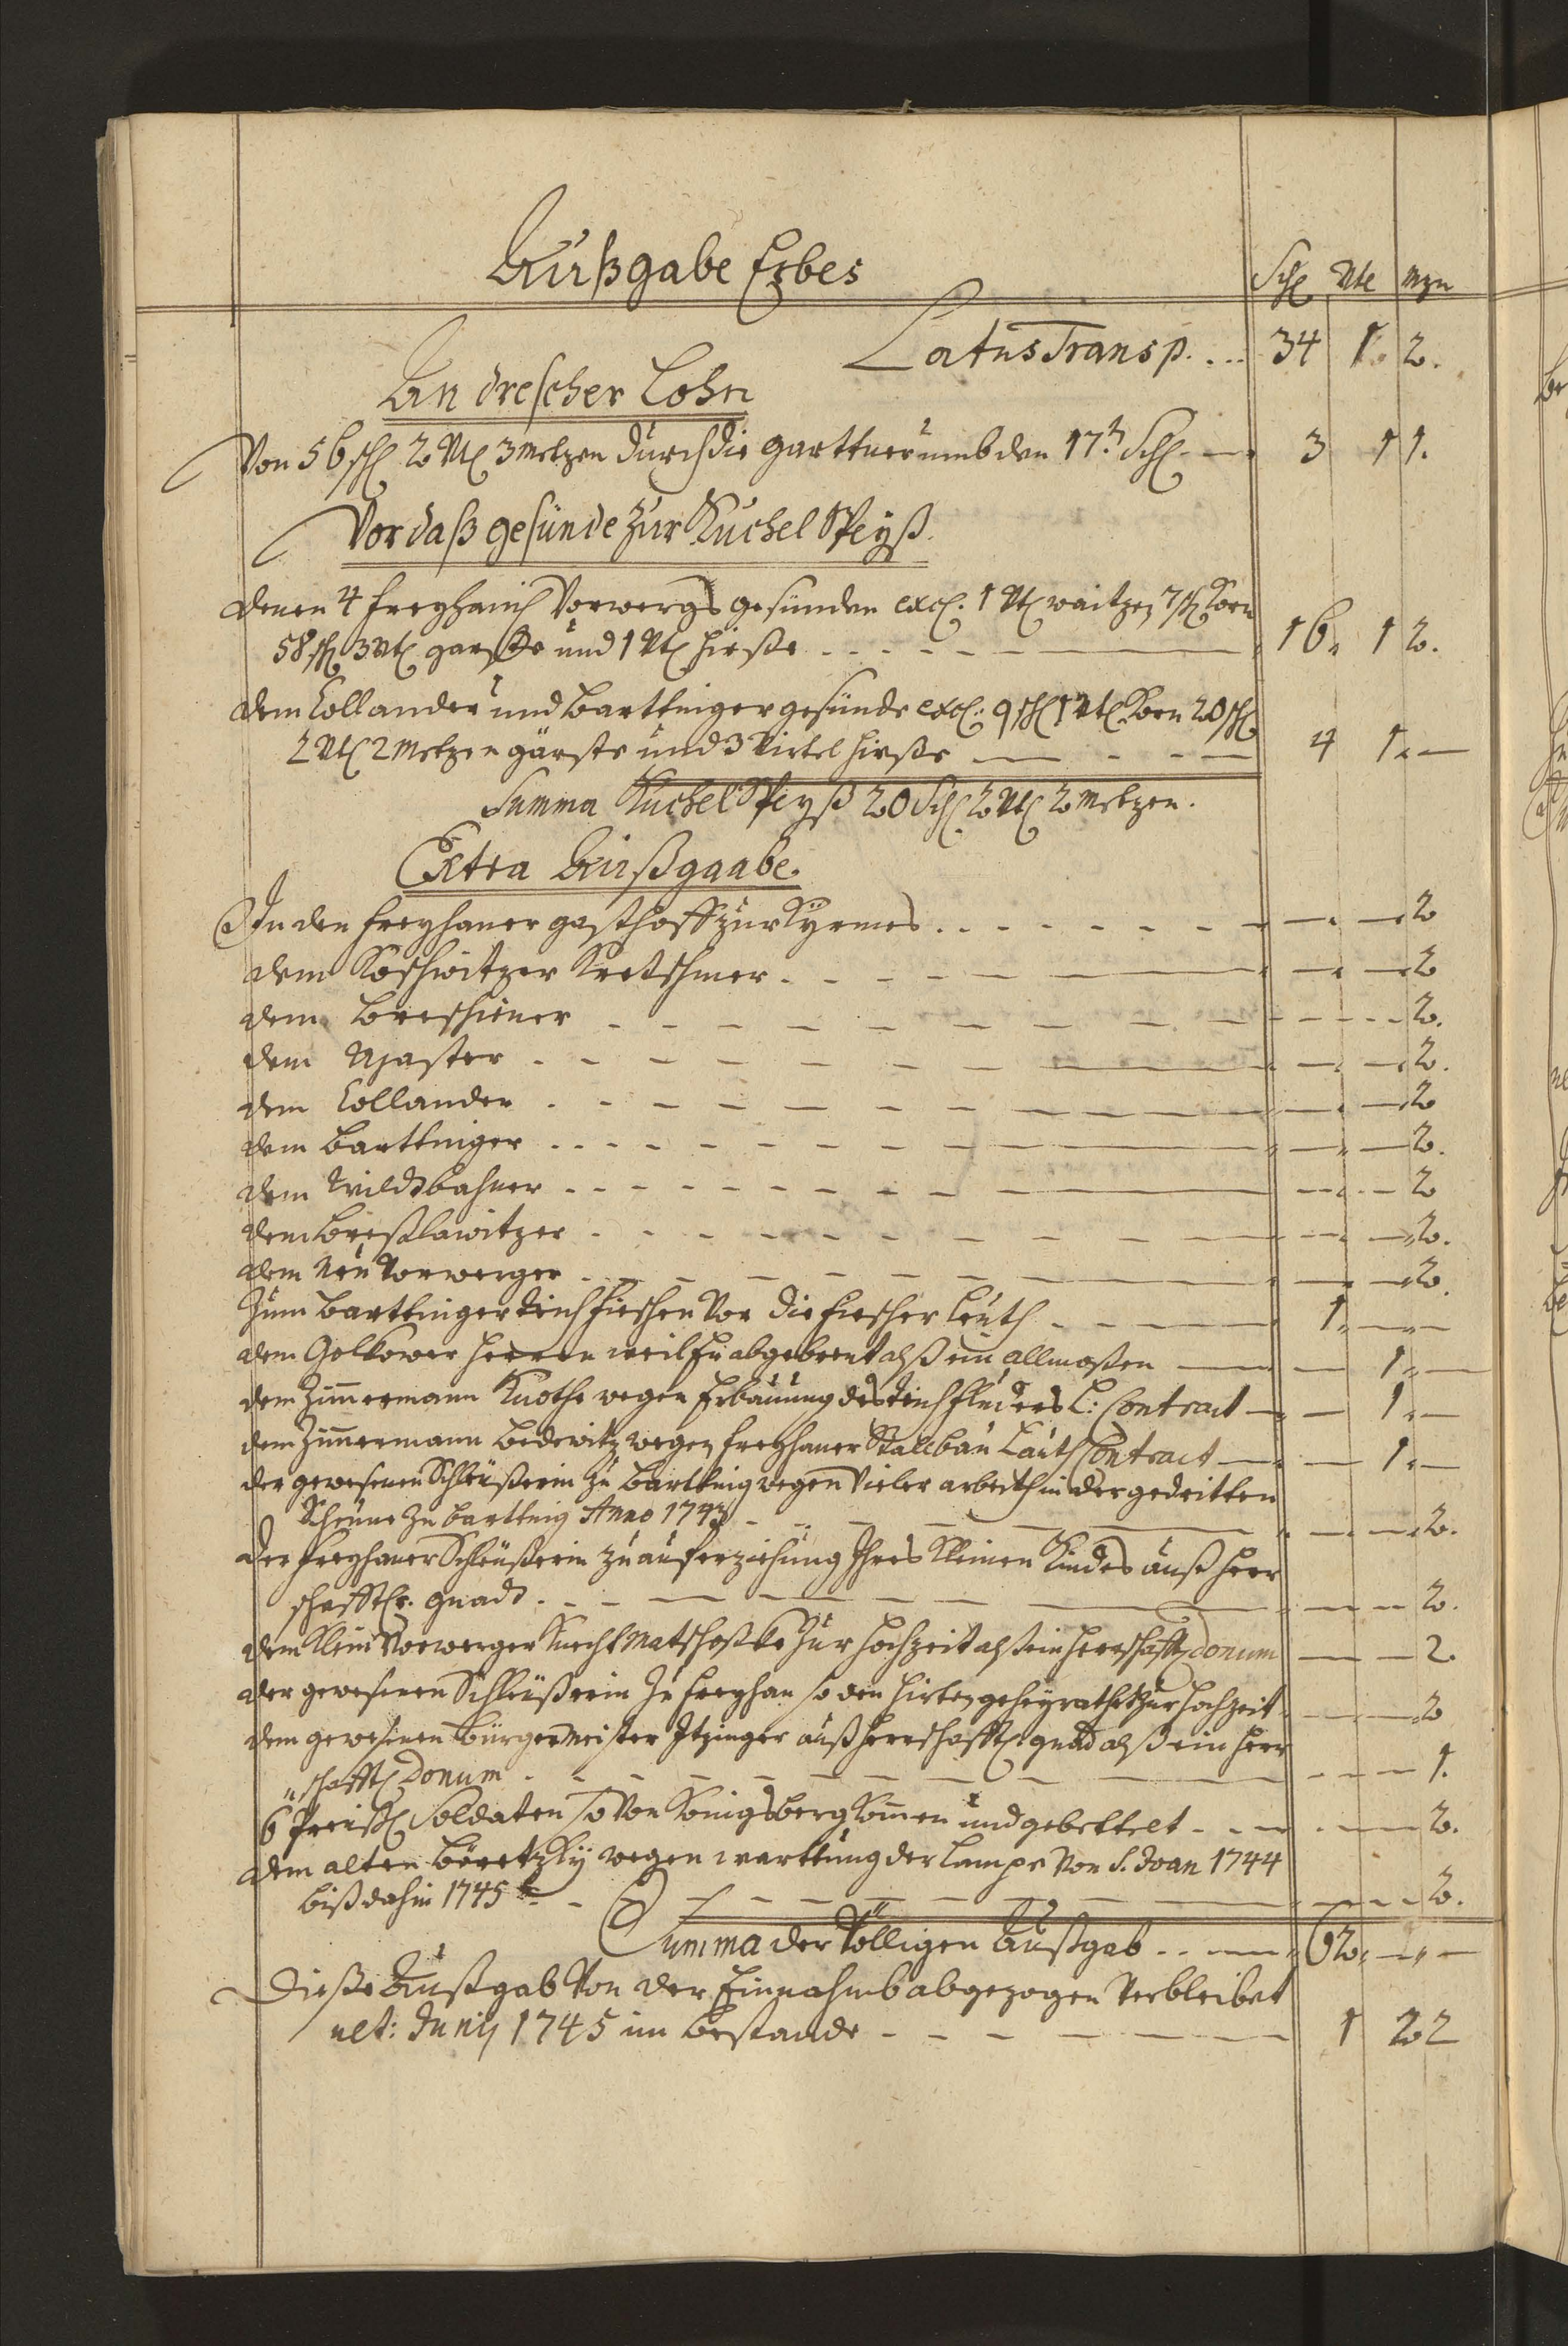 Außgabe Erbes
Schl Vtl Mzn
Latus Transp. . . . 34 1. 2.
An Drescher Lohn
Von 56 schl 2 Vtl 3 Metzen durch die Garttner umb den 17t. Schl. — 3 1 1.
Vor daß gesünde zur Kuchel Speyß.
denen 4 Freyhanl Vorwergs gesünden excl. 1 Vtl waitzen 7 schl Korn
58 schl 3 Vtl garste und 1 Vtl hirße . . . 16. 1 2.
dem Collander und Barttniger gesünde excl: 9 schl 1 Vtl Korn 20 schl
2 Vtl 2 Metzen gärste und 3 Virtel hirße — 4 1. —
Summa Kuchel Speyß 20 Schl 2 Vtl 2 Metzen.
Extra Außgaabe.
In den Freyhaner gasthoff zur Kyrmes . . . — — 2
dem Koschwitzer Kretschmer . . . — — 2
dem Breschiner . . . — — 2.
dem Ujaster . . . — — 2.
dem Collander . . . — — 2
dem Barttniger . . . — — 2.
dem Wildtbahner . . . — — 2
dem Breßlawitzer . . . — — 2.
dem Neu Vorwerger . . . — — 2.
Zum Barttniger teich fischen Vor die fischer Leuth . . . 1. — —
dem Golkower Herren weil Er abgebrent alß ein allmoßen — — 1. —
dem Zimmermann Knothe wegen Erbauung des teich fluders L: Contract — — 1. —
dem Zimmermann Bedewitz wegen Freyhaner Stallbau Lauth Contract — — 1. —
der gewesenen Schleußerin zu Barttnig wegen Vieler arbeith in der gedritten
Scheune zu Barttnig Anno 1743 . . . — — 2.
der Freyhaner Schleußerin zu auferziehung Ihres Kleinen Kindes auß Herr
schafftlr. gnad . . . — — 2.
dem Klein Vorwerger Knecht Matschoßke Zur Hochzeit alß ein Herrschafftl donum — — 2.
der gewesenen Schleußerin Zu Freyhan so den hirten geheyrathet zur Hochzeit — — 2
dem gewesenen Bürgermeister Itzinger auß Herrschafftl. gnad alß ein Herr
"schafftl donum . . . — — 1.
6 Preißl Soldaten so Von Königsberg komen und gebettelt . . . — — 2.
dem alten wegen warttung der Lampe Von S. Joan 1744
biß dahin 1745 . . . — — 2.
Summa der Völligen Außgab . . . 62. — —
Dieße Außgab Von der Einnahmb abgezogen Verbleibet
ult: Juny 1745 im bestande . . . 1 2 2